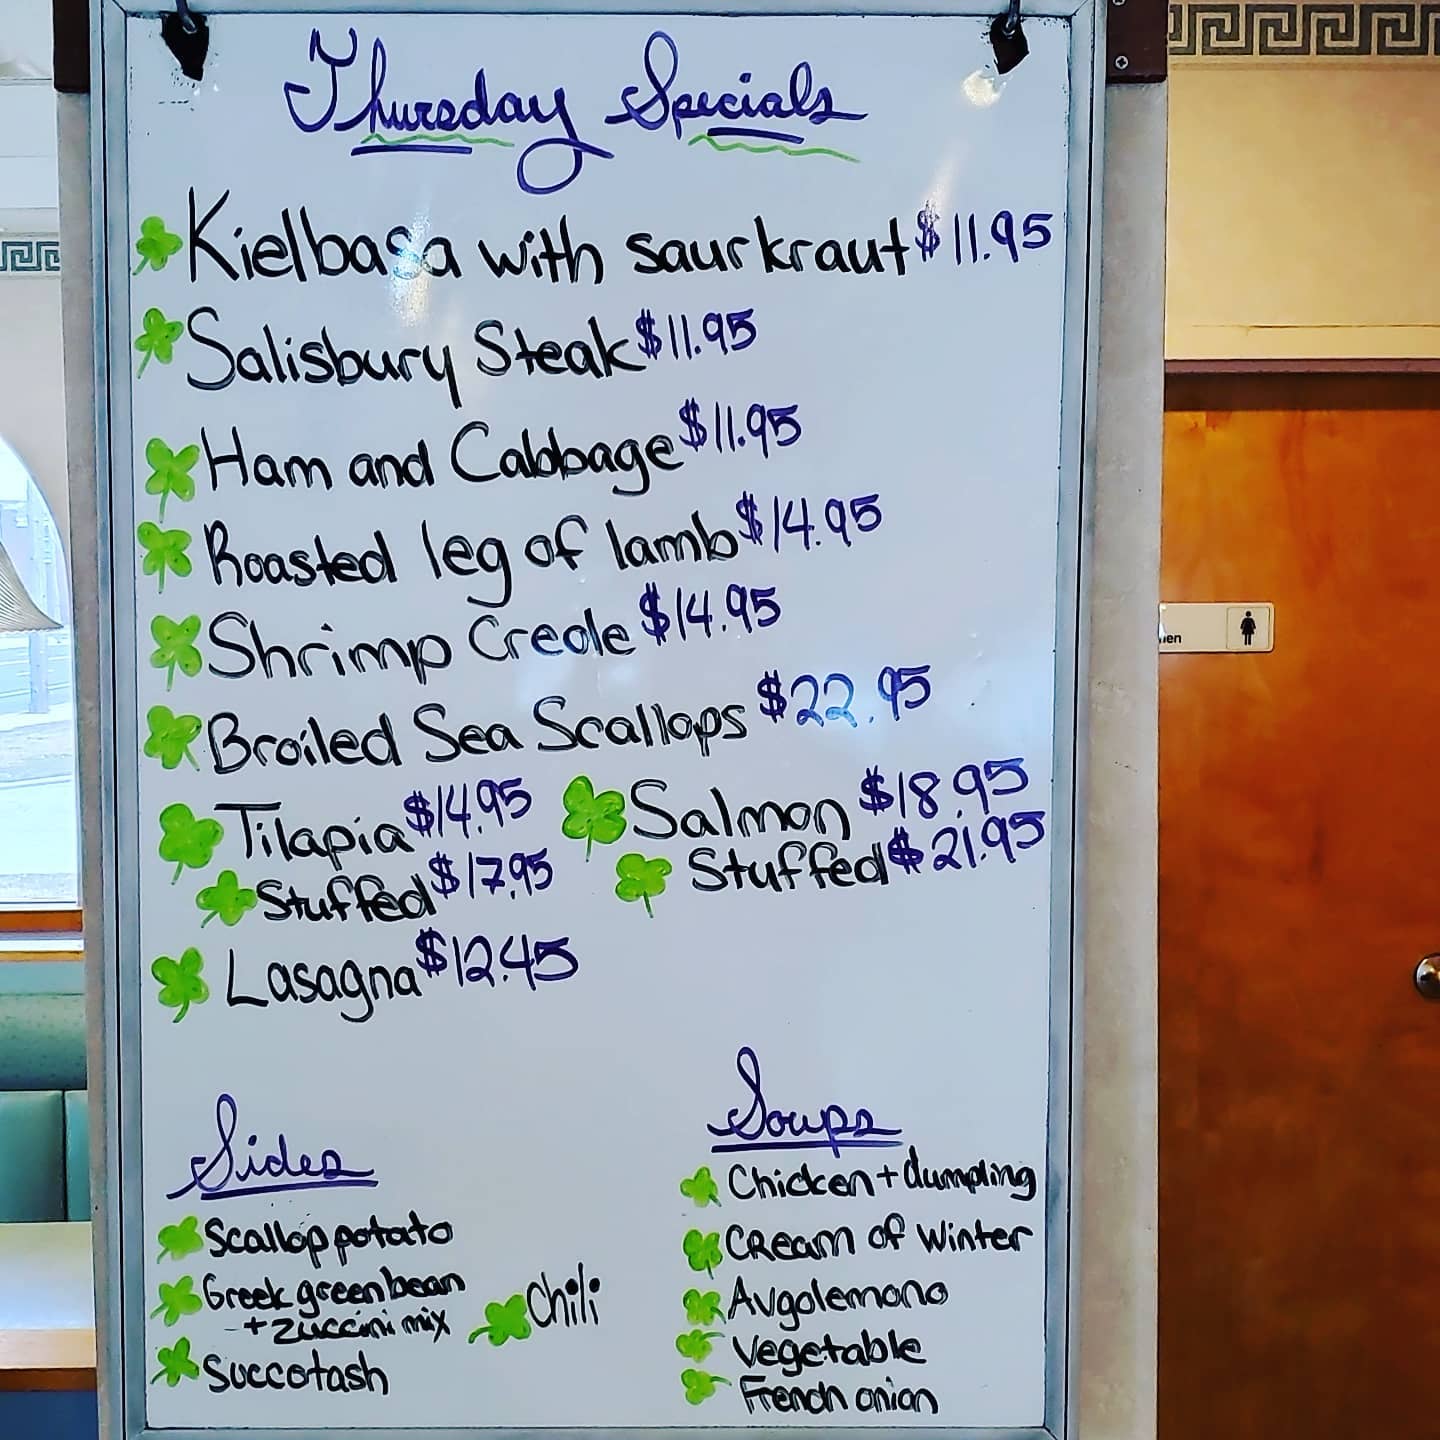 Thursday Specials
Kielbasa with saurkraut $11.95
Salisbury Steak $11.95
Ham and Cabbage $11.95
Roasted leg of lamb $14.95
Shrimp Creole $14.95
Broiled Sea Scallops $22.95
Tilapia $14.95 Salmon $18.95
Stuffed $17.95 Stuffed $21.95
Lasagna $12.45
Sides
Scallop potato
Greek green bean
+ zuccini mix
Succotash
Chili
Soups
Chicken + dumpling
Cream of Winter
Avgolemono
Vegetable
French onion
men